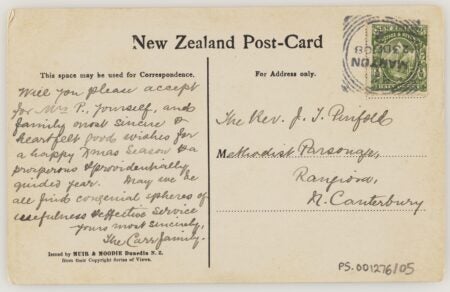 New Zealand Post-Card
This space may be used for Correspondence.
Will you please accept
for Mrs P., yourself, and
family most sincere &
heartfelt good wishes for
a happy Xmas Season & a
prosperous & providentially
guided year. May we be
all find congenial spheres of
usefulness & effective service
Yours most sincerely,
The Carr family.
Issued by MUIR & MOODIE Dunedin N. Z.
from their Copyright Series of Views.
For Address only.
The Rev. J. T. Pinfold
Methodist Parsonage,
Rangiora,
N. Canterbury
NEW ZEALAND
MARTON
23 DE 08
PS.001276/05